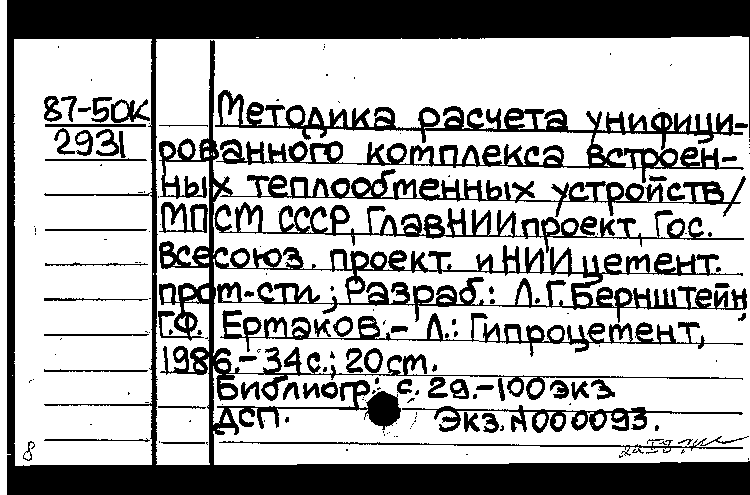 87-50К
2931
Методика расчета унифици-
рованного комплекса встроен-
ных теплообменных устройств/
МПСМ СССР, ГлавНИИпроект, Гос.
Всесоюз. проект. и НИИ цемент.
пром-сти; Разраб.: Л.Г. Бернштейн,
Г.Ф. Ермаков.- Л.: Гипроцемент,
1986.- 34с.; 20см.
Библиогр.: с. 29.-100экз
ДСП. Экз.N000093.
8